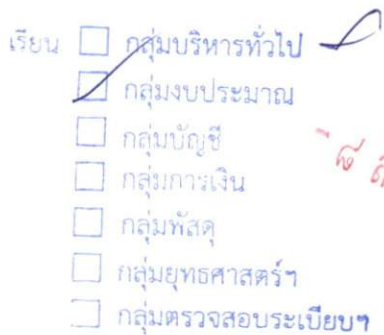 เรียน ☐ กลุ่มบริหารทั่วไป
☑ กลุ่มงบประมาณ
☐ กลุ่มบัญชี
☐ กลุ่มการเงิน
☐ กลุ่มพัสดุ
☐ กลุ่มยุทธศาสตร์ฯ
☐ กลุ่มตรวจสอบระเบียบฯ